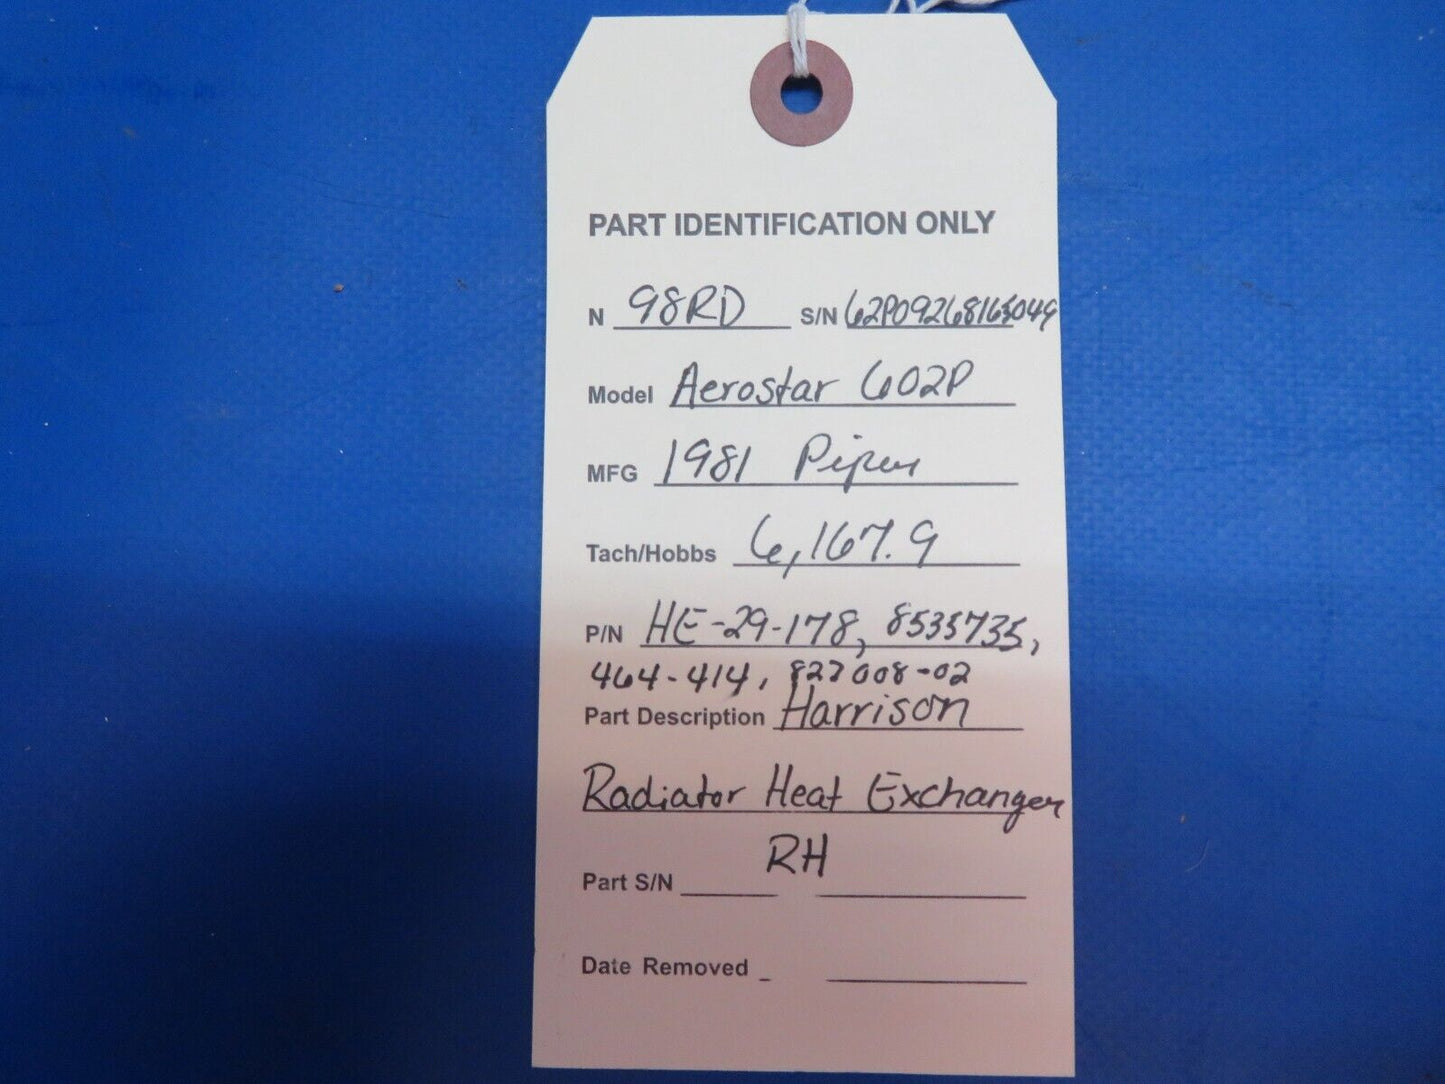 PART IDENTIFICATION ONLY
N 98RD S/N 62P09268165049
Model Aerostar 602P
MFG 1981 Piper
Tach/Hobbs 6,167.9
P/N HE-29-178, 8535735,
464-414, 827008-02
Part Description Harrison
Radiator Heat Exchanger
RH
Part S/N
Date Removed